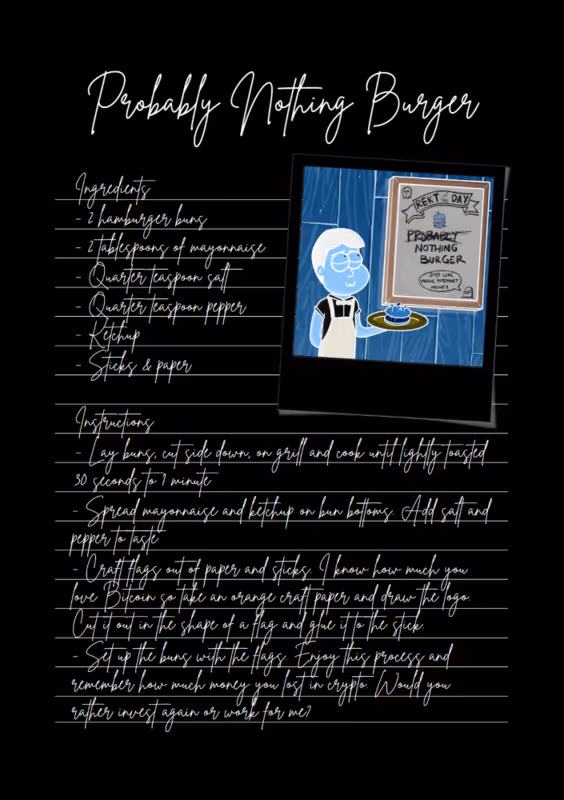 Probably Nothing Burger
Ingredients
- 2 hamburger buns
- 2 tablespoons of mayonnaise
- Quarter teaspoon salt
- Quarter teaspoon pepper
- Ketchup
- Sticks & paper
REKT of the DAY
PROBABLY
NOTHING
BURGER
JUST LIKE
MAGIC INTERNET
MONEY
Instructions
- Lay buns, cut side down, on grill and cook until lightly toasted
30 seconds to 1 minute
- Spread mayonnaise and ketchup on bun bottoms. Add salt and
pepper to taste
- Craft flags out of paper and sticks. I know how much you
love Bitcoin so take an orange craft paper and draw the logo.
Cut it out in the shape of a flag and glue it to the stick.
- Set up the buns with the flags. Enjoy this process and
remember how much money you lost in crypto. Would you
rather invest again or work for me?